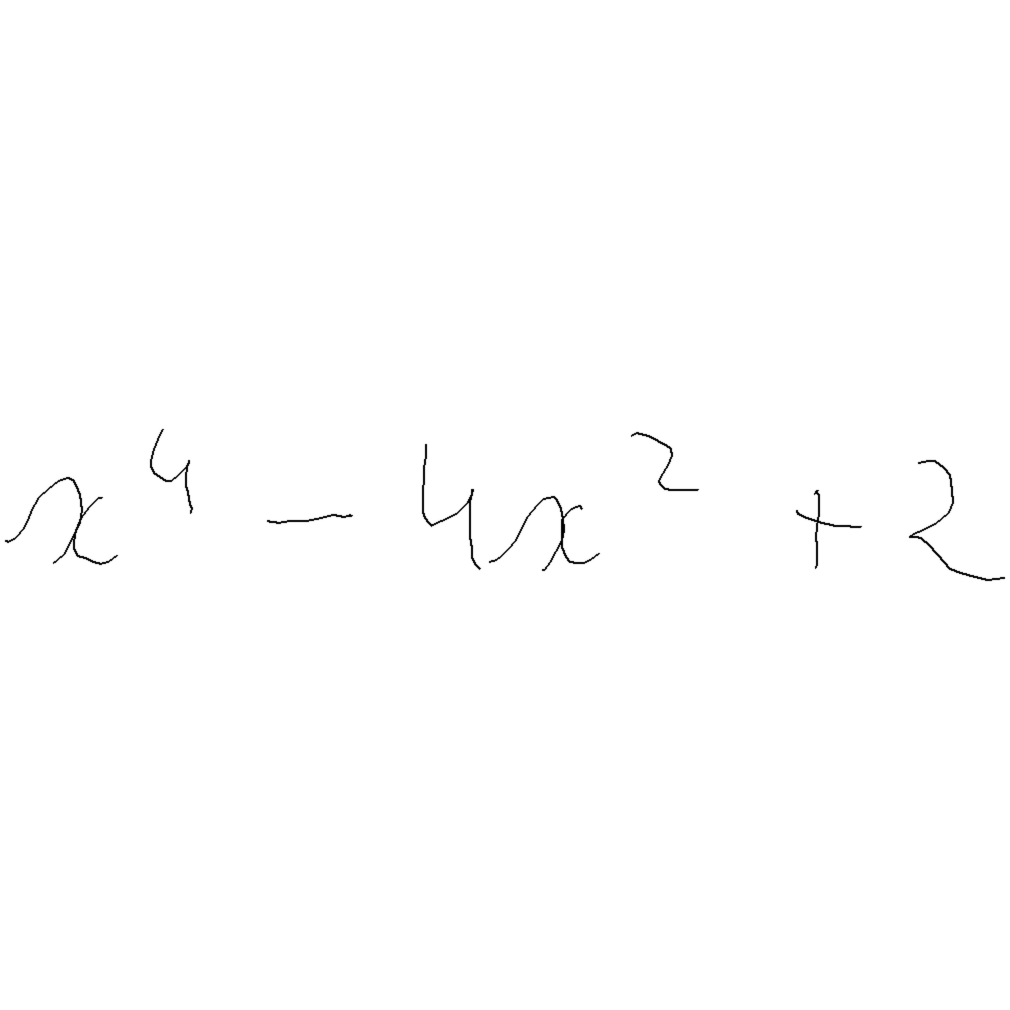 x⁴ − 4x² + 2